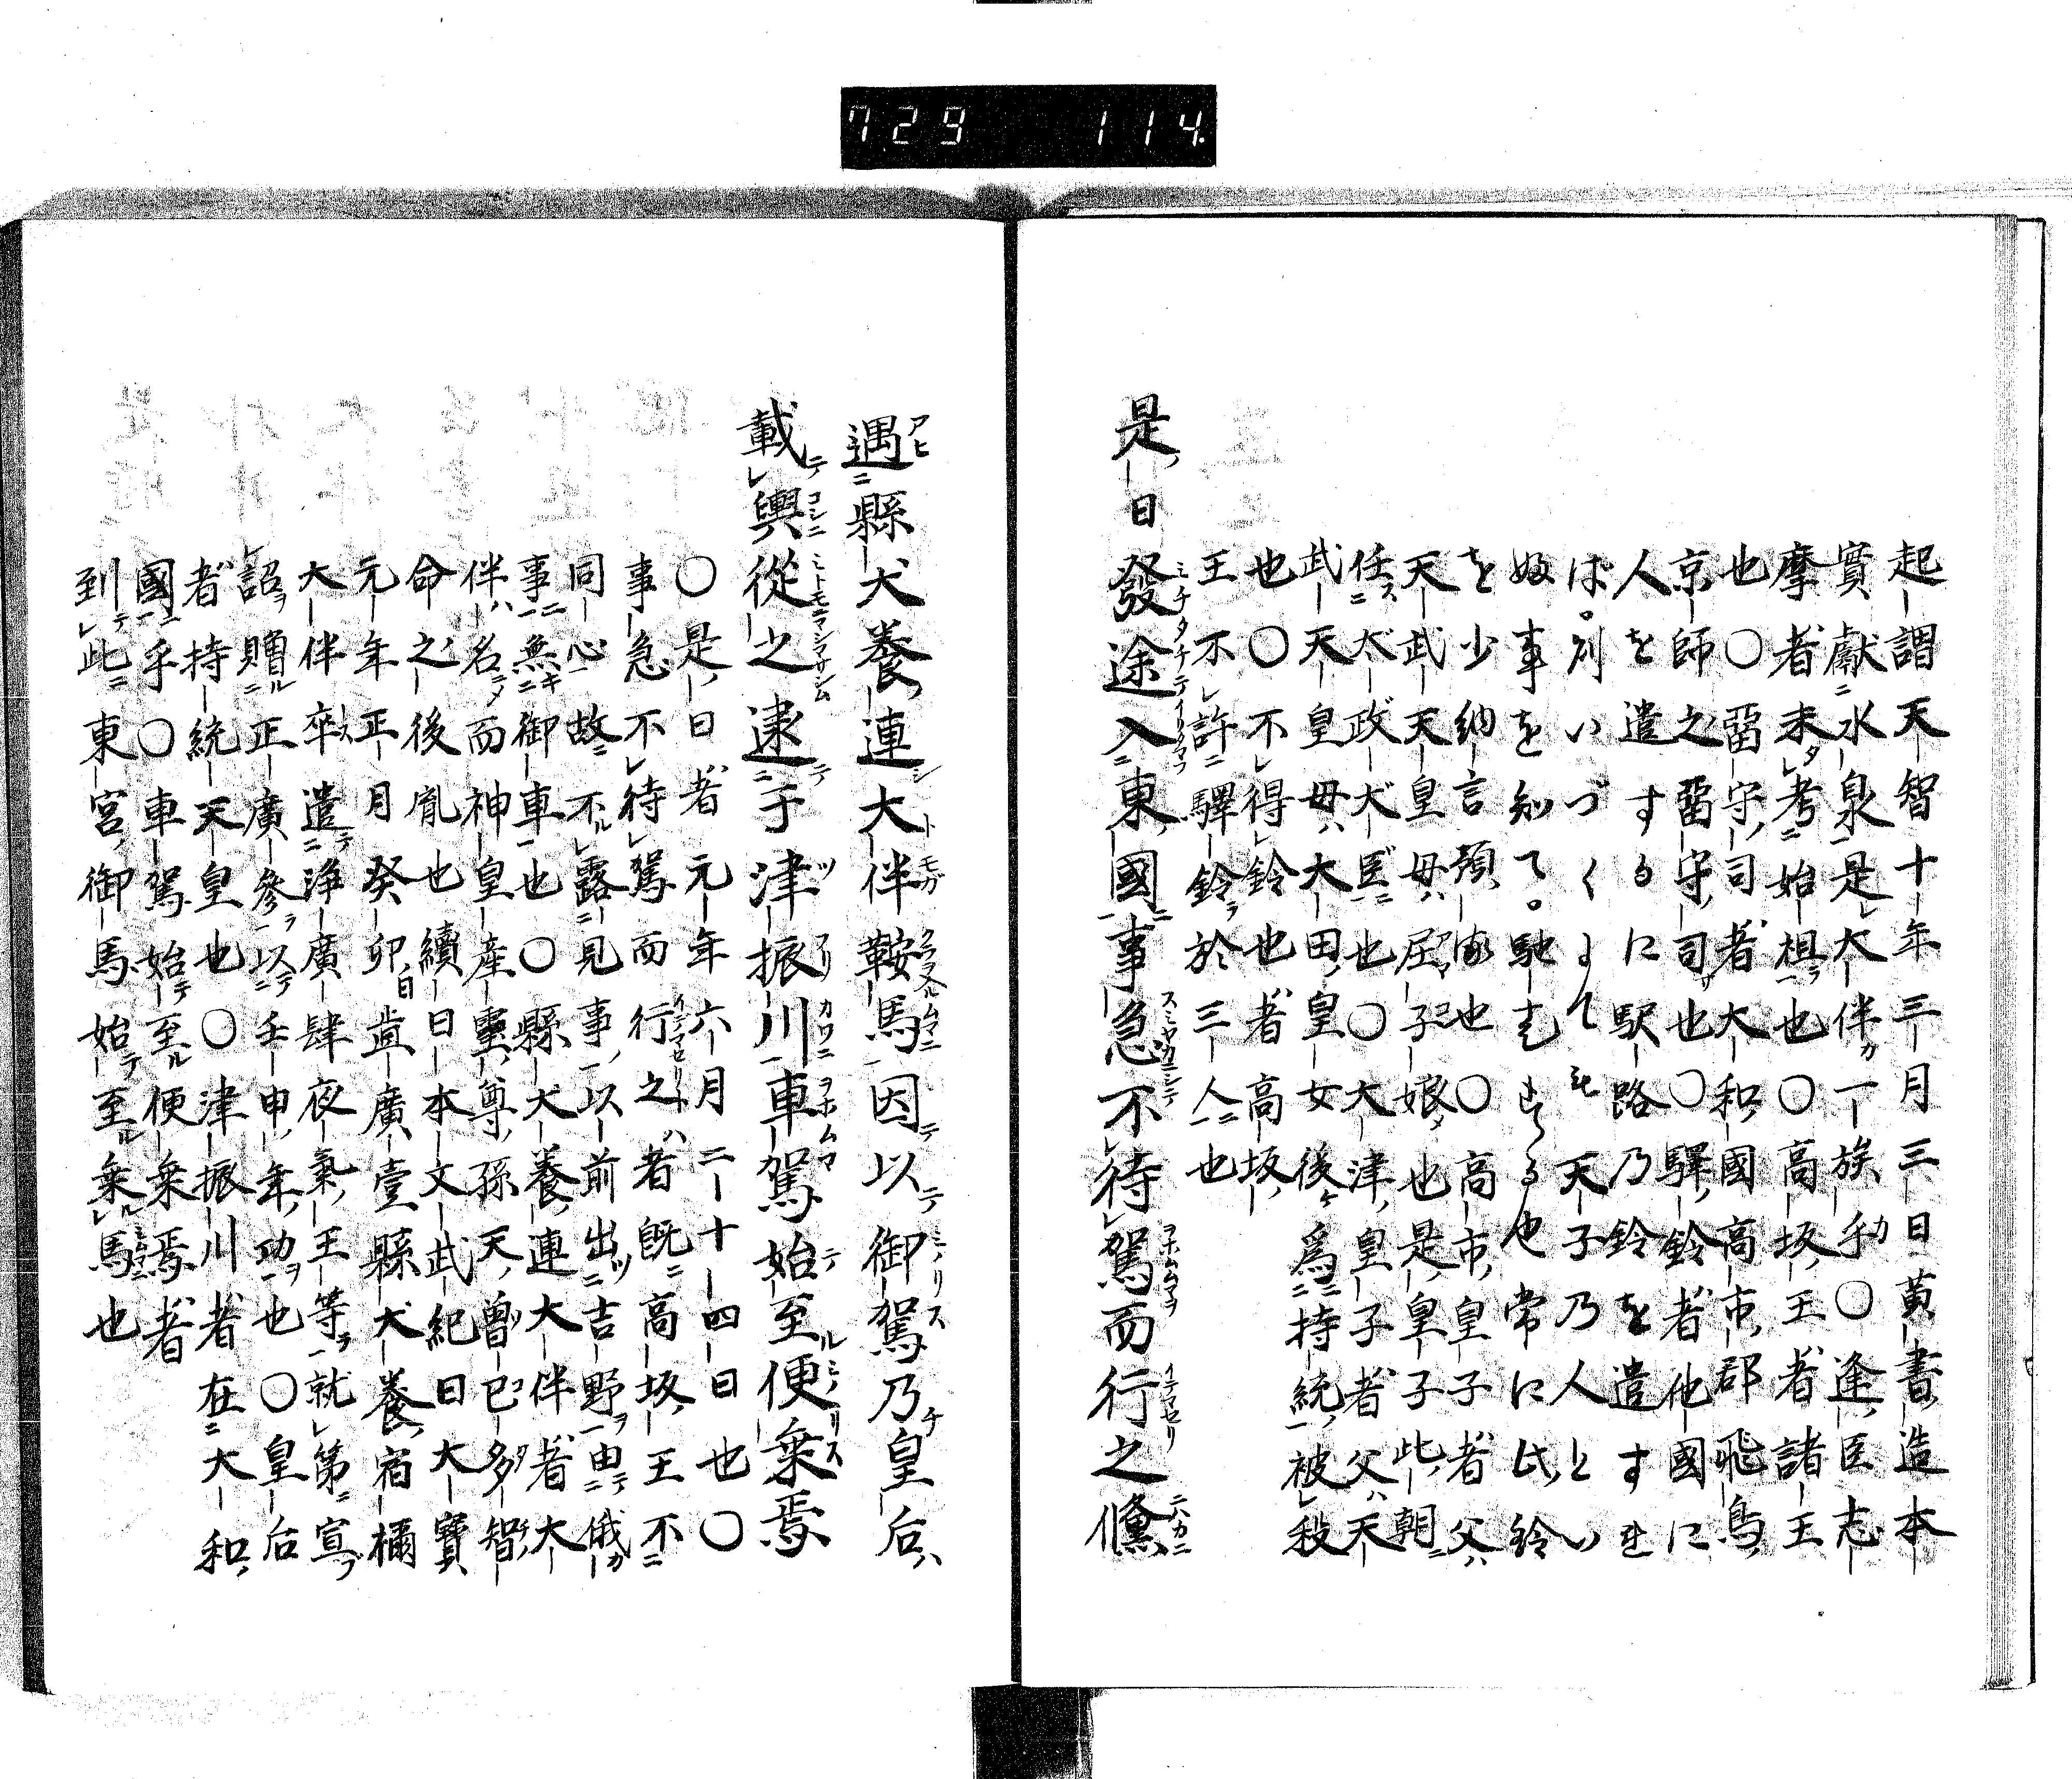 729 114
起謂天智十年三月三日黄書造本
實獻水泉是大伴一族乎〇逢臣志
摩者未考始祖也〇高坂王者諸王
也〇留守司者大和國高市郡飛鳥
京師之留守司也〇驛鈴者他國に
人を遣するに駅路乃鈴を遣すれ
は。いづくよりも天子乃人とい
事を知て。馳也常に此鈴
を少納言預也〇高市皇子者父
天武天皇母屈子娘也是皇子此朝
任太政大臣也〇大津皇子者父天
武天皇母大田皇女後爲持統被殺
也〇不得鈴也者高坂
王不許驛鈴於三人也
是日發途入東國事急不待駕而行之儵
遇縣犬養連大伴鞍馬因以御駕乃皇后
載輿從之逮于津振川車駕始至便乗焉
〇是日者元年六月二十四日也〇
事急不待駕而行之者既高坂王不
同心故不露見事以前出吉野由俄
事無御車也〇縣犬養連大伴者大
伴名而神皇産靈尊孫天曽已多智
命之後胤也續日本文武紀曰大寶
元年正月癸卯直廣壹縣犬養宿禰
大伴卒遣浄廣肆夜氣王等就第宣
詔贈正廣參以壬申年功也〇皇后
者持統天皇也〇津振川者在大和
國乎〇車駕始至便乗焉者
到此東宮御馬始至乗馬也